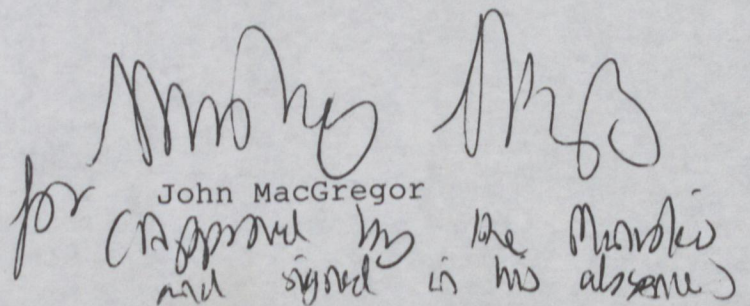 for John MacGregor
(Approved by the Minister
and signed in his absence)